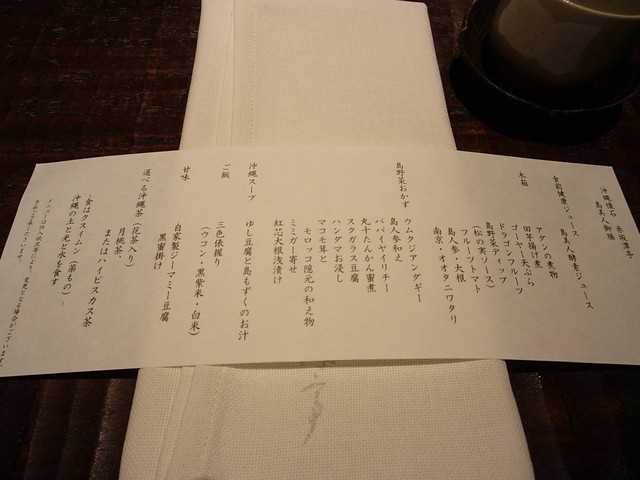 沖縄懐石 赤坂潭亭
島美人御膳
食前健康ジュース 島美人酵素ジュース
木箱
アダンの煮物
田芋揚げ煮
ゴーヤー天ぷら
ドラゴンフルーツ
島野菜ディップ
(松の実ソース)
フルーツトマト
島人参・大根
南京・オオタニワタリ
島野菜おかず
ウムクジアンダギー
島人参和え
パパイヤイリチー
丸十たんかん蜜煮
スクガラス豆腐
ハンダマお浸し
マコモ茸と
モロッコ隠元の和え物
ミミガー寄せ
紅芯大根浅漬け
沖縄スープ
ゆし豆腐と島もずくのお汁
ご飯
三色俵握り
(ウコン・黒紫米・白米)
甘味
自家製ジーマミー豆腐
黒蜜掛け
選べる沖縄茶(花茶入り)
月桃茶、
またはハイビスカス茶
-食はクスイムン(薬もの)-
沖縄の土と光と水を食す